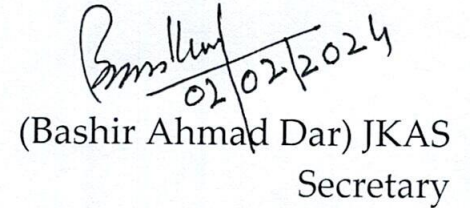 02/02/2024
(Bashir Ahmad Dar) JKAS
Secretary